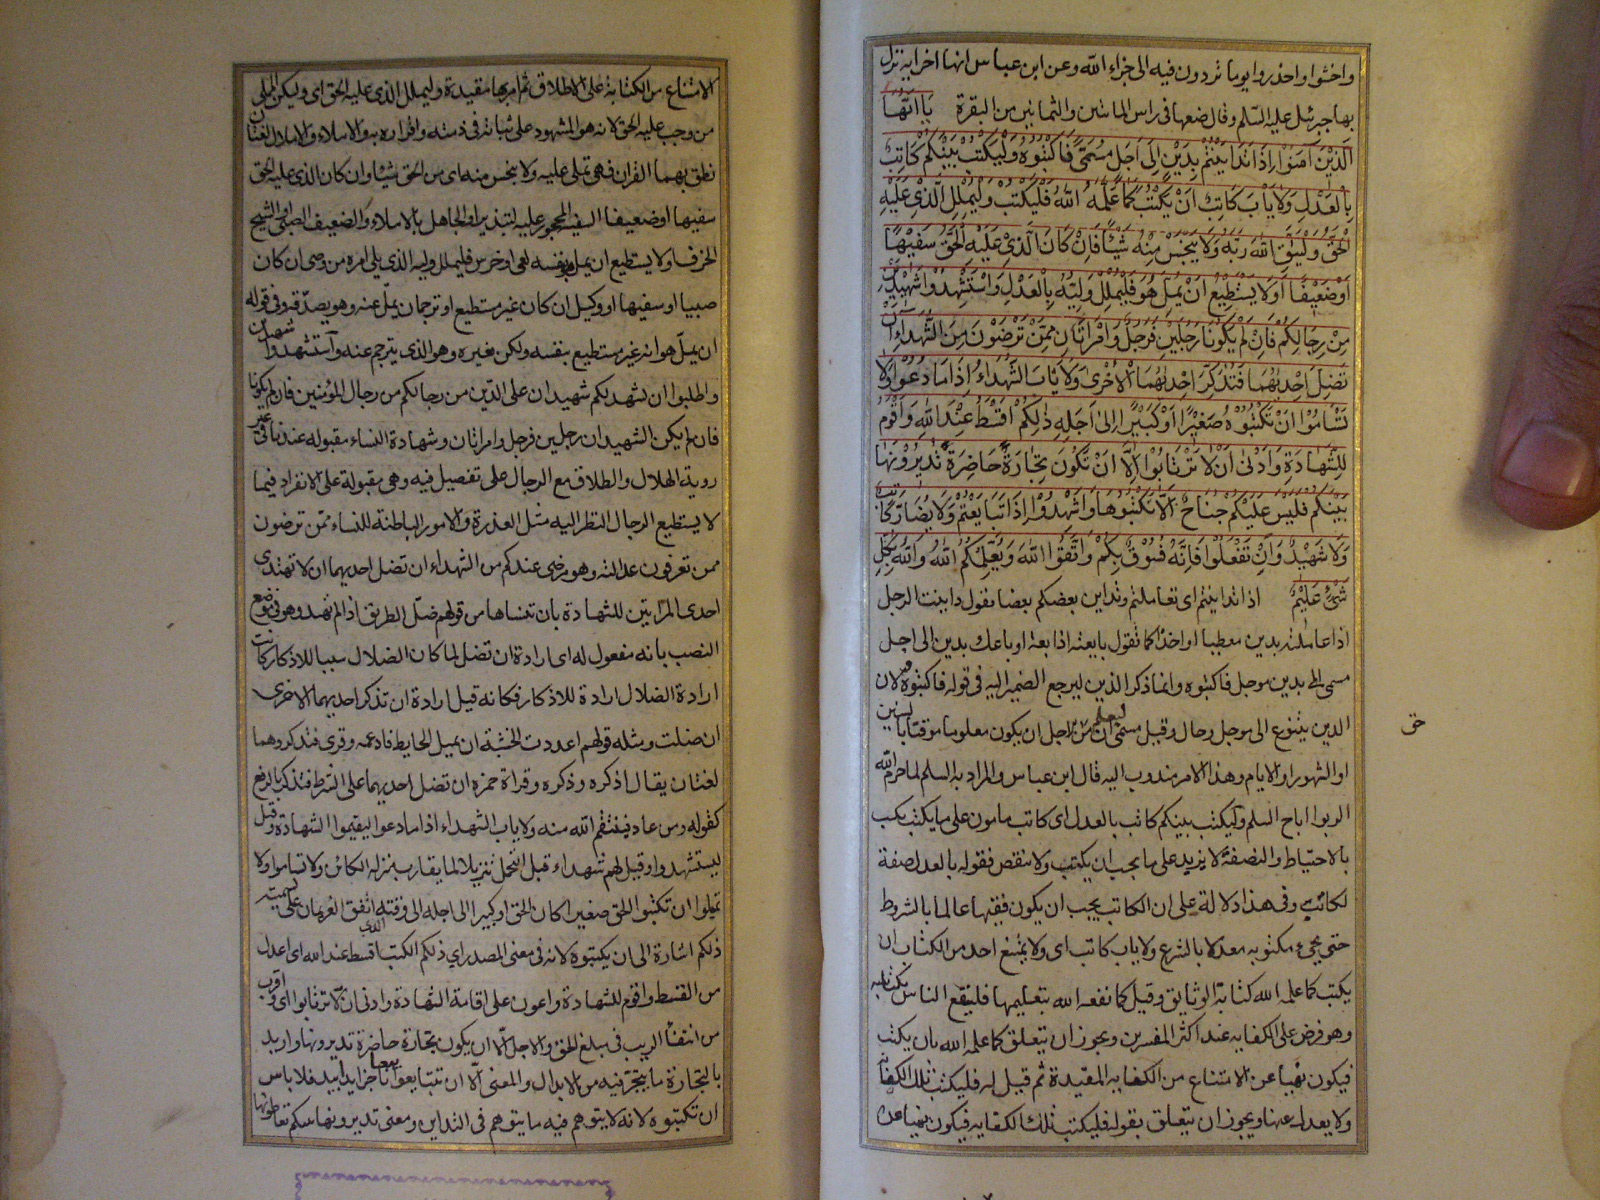 واخشوا واحذروا يوما تردون فيه الى جزاء الله وعن ابن عباس انها اخر اية نزل
بها جبرئيل عليه السلم وقال ضعها في راس الماتين والثمانين من البقرة يَا اَيُّهَا
الَّذِينَ آمَنُوا اِذَا تَدَايَنْتُمْ بِدَيْنٍ اِلَى اَجَلٍ مُسَمًّى فَاكْتُبُوهُ وَلْيَكْتُبْ بَيْنَكُمْ كَاتِبٌ
بِالْعَدْلِ وَلَا يَابَ كَاتِبٌ اَنْ يَكْتُبَ كَمَا عَلَّمَهُ اللهُ فَلْيَكْتُبْ وَلْيُمْلِلِ الَّذِي عَلَيْهِ
الْحَقُّ وَلْيَتَّقِ اللهَ رَبَّهُ وَلَا يَبْخَسْ مِنْهُ شَيْئًا فَاِنْ كَانَ الَّذِي عَلَيْهِ الْحَقُّ سَفِيْهًا
اَوْ ضَعِيْفًا اَوْ لَا يَسْتَطِيعُ اَنْ يُمِلَّ هُوَ فَلْيُمْلِلْ وَلِيُّهُ بِالْعَدْلِ وَاسْتَشْهِدُوا شَهِيْدَيْنِ
مِنْ رِجَالِكُمْ فَاِنْ لَمْ يَكُونَا رَجُلَيْنِ فَرَجُلٌ وَامْرَاَتَانِ مِمَّنْ تَرْضَوْنَ مِنَ الشُّهَدَاءِ اَنْ
تَضِلَّ اِحْدٰيهُمَا فَتُذَكِّرَ اِحْدٰيهُمَا الْاُخْرٰى وَلَا يَابَ الشُّهَدَاءُ اِذَا مَا دُعُوا وَلَا
تَسْاَمُوْا اَنْ تَكْتُبُوْهُ صَغِيْرًا اَوْ كَبِيْرًا اِلٰى اَجَلِهِ ذٰلِكُمْ اَقْسَطُ عِنْدَ اللهِ وَاَقْوَمُ
لِلشَّهَادَةِ وَاَدْنٰى اَنْ لَا تَرْتَابُوا اِلَّا اَنْ تَكُونَ تِجَارَةً حَاضِرَةً تُدِيرُوْنَهَا
بَيْنَكُمْ فَلَيْسَ عَلَيْكُمْ جُنَاحٌ اَلَّا تَكْتُبُوهَا وَاَشْهِدُوْا اِذَا تَبَايَعْتُمْ وَلَا يُضَارَّ كَاتِبٌ
وَلَا شَهِيْدٌ وَاِنْ تَفْعَلُوْا فَاِنَّهُ فُسُوْقٌ بِكُمْ وَاتَّقُوا اللهَ وَيُعَلِّمُكُمُ اللهُ وَاللهُ بِكُلِّ
شَيْءٍ عَلِيْمٌ اذا تداينتم اى تعاملتم وتداين بعضكم بعضا يقول داينت الرجل
اذا عاملته بدين معطيا او اخذا كما تقول بايعته اذا بعته او باعك بدين الى اجل
مسمى الى بدين موجل فاكتبوه وانما ذكر الدين ليرجع الضمير اليه في قوله فاكتبوه لان
الدين يتنوع الى موجل وحال وقيل مسمى ليعلم ان من حق الاجل ان يكون معلوما موقتا بالسنين
او الشهور او الايام وهذا الامر مندوب اليه قال ابن عباس والمراد به السلم لما حرم الله
الربوا اباح السلم وليكتب بينكم كاتب بالعدل اى كاتب مامون على ما يكتب يكتب
بالاحتياط والنصفة لا يزيد على ما يجب ان يكتب ولا ينقص فقوله بالعدل صفة
لكاتب وفي هذا دلالة على ان الكاتب يجب ان يكون فقيها عالما بالشروط
حتى يجيء مكتوبه معدلا بالشرع ولا ياب كاتب اى ولا يمتنع احد من الكتاب ان
يكتب كما علمه الله كتابة الوثائق وقيل كما نفعه الله بتعليمها فلينفع الناس بكتابته
وهو فرض على الكفايه عند اكثر المفسرين ويجوز ان يتعلق كما علمه الله بان يكتب
فيكون نهيا عن الامتناع من الكفايه المقيدة ثم قيل له فليكتب تلك الكفاية
ولا يعدل عنها ويجوز ان يتعلق بقوله فليكتب تلك الكفايه فيكون نهيا عن
حق
الامتناع من الكتابة على الاطلاق ثم امر بها مقيدة وليملل الذى عليه الحق اى وليكن المملى
من وجب عليه الحق لانه هو المشهود على ثباته في ذمته واقراره به والاملاء والاملال لغتان
نطق بهما القران فهى تملى عليه ولا يبخس منه اى من الحق شيئا وان كان الذى عليه الحق
سفيها او ضعيفا السفيه المحجور عليه لتبذيره او الجاهل بالاملاء والضعيف الصبى او الشيخ
الخرف او لا يستطيع ان يمل بنفسه لعى او خرس فليملل وليه الذى يلى امره من وصى ان كان
صبيا او سفيها او وكيل ان كان غير مستطيع او ترجمان يمل عنه وهو يصدقه وفي قوله
ان يمل هو انه غير مستطيع بنفسه ولكن بغيره وهو الذى يترجم عنه واستشهدوا شهيدين
واطلبوا ان تشهد لكم شهيدان على الدين من رجالكم من رجال المؤمنين فان لم يكونا
فان لم يكن الشهيدان رجلين فرجل وامراتان وشهادة النساء مقبوله عندنا في غير
روية الهلال والطلاق مع الرجال على تفصيل فيه وهى مقبولة على الانفراد فيما
لا يستطيع الرجال النظر اليه مثل العذرة والامور الباطنة للنساء ممن ترضون
ممن تعرفون عدالته وهو مرضى عندكم من الشهداء ان تضل احديهما ان لا تهتدى
احدى المراتين للشهادة بان تنساها من قولهم ضل الطريق اذا لم يهتد وهو في موضع
النصب بانه مفعول له اى ارادة ان تضل لما كان الضلال سببا للاذكار كانت
ارادة الضلال ارادة للاذكار فكانه قيل ارادة ان تذكر احديهما الاخرى
ان ضلت ومثله قولهم اعددت الخشبة ان يميل الحايط فادعمه وقرى فتذكر وهما
لغتان يقال اذكره وذكره وقراة حمزه ان تضل احديهما على الشرط فتذكر بالرفع
كقوله ومن عاد فينتقم الله منه ولا ياب الشهداء اذا ما دعوا ليقيموا الشهادة وقيل
ليستشهدوا وقيل لهم شهداء قبل التحمل تنزيلا لما يقارب منزلة الكائن ولا تساموا ولا
تملوا ان تكتبوا الحق صغيرا كان الحق او كبيرا الى اجله الى وقته الذى اتفق الغريمان على تسميته
ذلكم اشارة الى ان يكتبوه لانه في معنى المصدر اى ذلكم الكتب اقسط عند الله اى اعدل
من القسط واقوم للشهادة واعون على اقامة الشهادة وادنى ان لا ترتابوا اى واقرب
من انتفاء الريب في مبلغ الحق والاجل الا ان يكون تجارة حاضرة تديرونها واريد
بالتجارة ما يتجر فيه من الابدال والمعنى الا ان تتبايعوا بيعا ناجزا يدا بيد فلا باس
ان تكتبوه لانه لا يتوهم فيه ما يتوهم في التداين ومعنى تديرونها بينكم تعاطونها